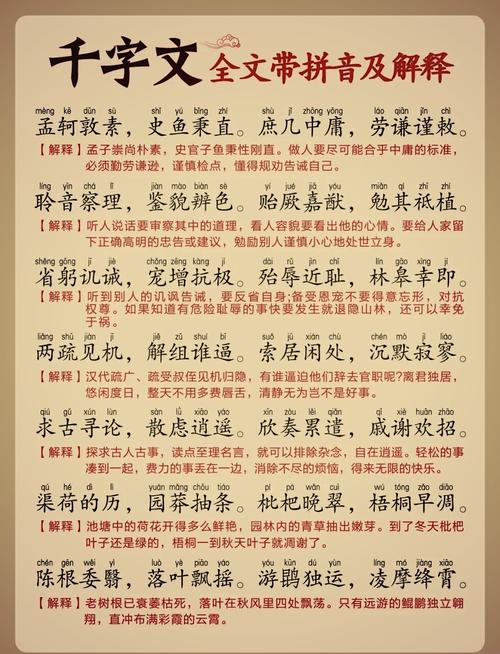 千字文 全文带拼音及解释
mèng kē dūn sù shǐ yú bǐng zhí shù jī zhōng yōng láo qiān jǐn chì
孟轲敦素，史鱼秉直。庶几中庸，劳谦谨敕。
【解释】孟子崇尚朴素，史官子鱼秉性刚直。做人要尽可能合乎中庸的标准，
必须勤劳谦逊，谨慎检点，懂得规劝告诫自己。
líng yīn chá lǐ jiàn mào biàn sè yí jué jiā yóu miǎn qí zhī zhí
聆音察理，鉴貌辨色。贻厥嘉猷，勉其祗植。
【解释】听人说话要审察其中的道理，看人容貌要看出他的心情。要给人家留
下正确高明的忠告或建议，勉励别人谨慎小心地处世立身。
xǐng gōng jī jiè chǒng zēng kàng jí dài rǔ jìn chǐ lín gāo xìng jí
省躬讥诫，宠增抗极。殆辱近耻，林皋幸即。
【解释】听到别人的讥讽告诫，要反省自身;备受恩宠不要得意忘形，对抗
权尊。如果知道有危险耻辱的事快要发生就退隐山林，还可以幸免
于祸。
liǎng shū jiàn jī jiě zǔ shuí bī suǒ jū xián chǔ chén mò jì liáo
两疏见机，解组谁逼。索居闲处，沉默寂寥。
【解释】汉代疏广、疏受叔侄见机归隐，有谁逼迫他们辞去官职呢?离君独居，
悠闲度日，整天不用多费唇舌，清静无为岂不是好事。
qiú gǔ xún lùn sàn lǜ xiāo yáo xīn zòu lěi qiǎn qī xiè huān zhāo
求古寻论，散虑逍遥。欣奏累遣，戚谢欢招。
【解释】探求古人古事，读点至理名言，就可以排除杂念，自在逍遥。轻松的事
凑到一起，费力的事丢在一边，消除不尽的烦恼，得来无限的快乐。
qú hé dì lì yuán mǎng chōu tiáo pí pá wǎn cuì wú tóng zǎo diāo
渠荷的历，园莽抽条。枇杷晚翠，梧桐早凋。
【解释】池塘中的荷花开得多么鲜艳，园林内的青草抽出嫩芽。到了冬天枇杷
叶子还是绿的，梧桐一到秋天叶子就凋谢了。
chén gēn wěi yì luò yè piāo yáo yóu kūn dú yùn líng mó jiàng xiāo
陈根委翳，落叶飘摇。游鹍独运，凌摩绛霄。
【解释】老树根已衰萎枯死，落叶在秋风里四处飘荡。只有远游的鲲鹏独立翱
翔，直冲布满彩霞的云霄。